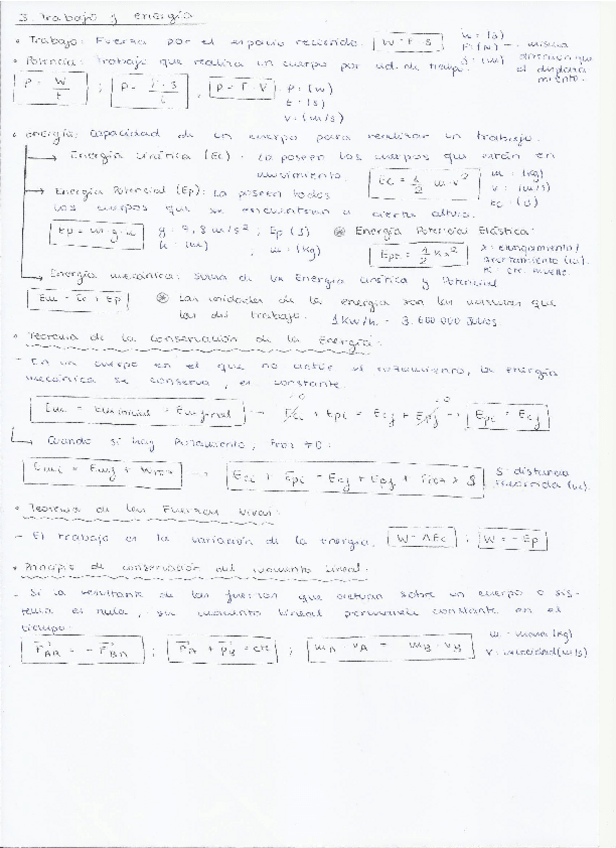 3. Trabajo y energía
• Trabajo: Fuerza por el espacio recorrido. W = F · S W = (J) F = (N) → misma dirección que el desplazamiento.
• Potencia: Trabajo que realiza un cuerpo por ud. de tiempo. S = (m)
P = W/t ; P = F · S/t ; P = F · V P = (W)
t = (s)
V = (m/s)
• Energía: Capacidad de un cuerpo para realizar un trabajo.
→ Energía Cinética (Ec): La poseen los cuerpos que están en movimiento. Ec = 1/2 m · v² m = (kg) v = (m/s) Ec = (J)
→ Energía Potencial (Ep): La poseen todos
los cuerpos que se encuentran a cierta altura.
Ep = m · g · h g = 9,8 m/s² ; Ep (J) h = (m) ; m = (kg)
⊛ Energía Potencial Elástica:
Epe = 1/2 K x² x = elongamiento/ (m). K = cte. muelle.
→ Energía mecánica: Suma de la Energía Cinética y Potencial.
Em = Ec + Ep ⊛ Las unidades de la energía son las mismas que
las del trabajo. 1 Kw/h = 3.600 000 Julios
• Teorema de la conservación de la Energía:
- En un cuerpo en el que no el rozamiento, la energía
mecánica se conserva, es constante.
Em = Em inicial = Em final → Eci + Epi = Ecf + Epf → Epi = Ecf
→ Cuando sí hay Rozamiento, Froz ≠ 0:
Emi = Emf + Wroz → Eci + Epi = Ecf + Epf + Froz × S S = distancia recorrida (m).
• Teorema de las Fuerzas Vivas:
- El trabajo es la variación de la Energía. W = ΔEc ; W = - Ep
• Principio de conservación del momento Lineal:
- Si la resultante de las fuerzas que actúan sobre un cuerpo o sis-
tema es nula, su momento lineal permanece constante en el
tiempo:
F AB = - F BA ; P A + P B = cte ; mA · vA = mB · vB m = masa (kg)
v = velocidad (m/s)